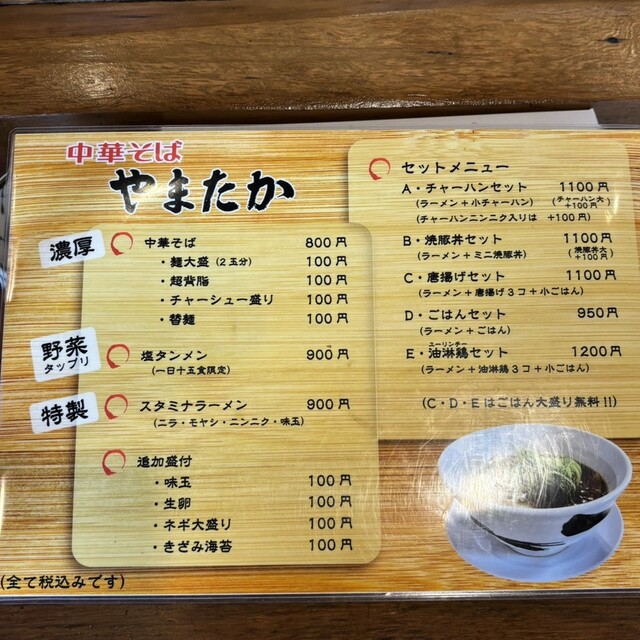 中華そば
やまたか
濃厚
中華そば 800円
・麺大盛(2玉分) 100円
・超背脂 100円
・チャーシュー盛り 100円
・替麺 100円
野菜
タップリ
塩タンメン 900円
(一日十五食限定)
特製
スタミナラーメン 900円
(ニラ・モヤシ・ニンニク・味玉)
追加盛付
・味玉 100円
・生卵 100円
・ネギ大盛り 100円
・きざみ海苔 100円
(全て税込みです)
セットメニュー
A・チャーハンセット 1100円
(ラーメン+小チャーハン) (チャーハン大+100円)
(チャーハンニンニク入りは +100円)
B・焼豚丼セット 1100円
(ラーメン+ミニ焼豚丼) (焼豚丼大+100円)
C・唐揚げセット 1100円
(ラーメン+唐揚げ3コ+小ごはん)
D・ごはんセット 950円
(ラーメン+ごはん)
ユーリンチー
E・油淋鶏セット 1200円
(ラーメン+油淋鶏3コ+小ごはん)
(C・D・Eはごはん大盛り無料!!)